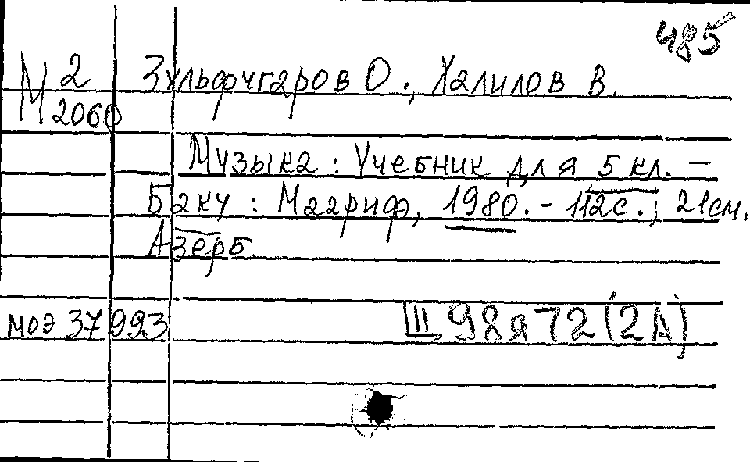 485
М 2 Зульфугаров О., Халилов В.
2060
Музыка : Учебник для 5 кл. –
Баку : Маариф, 1980. - 112с. ; 21см.
Азерб.
моэ 37 993 Ш 98я72(2А)